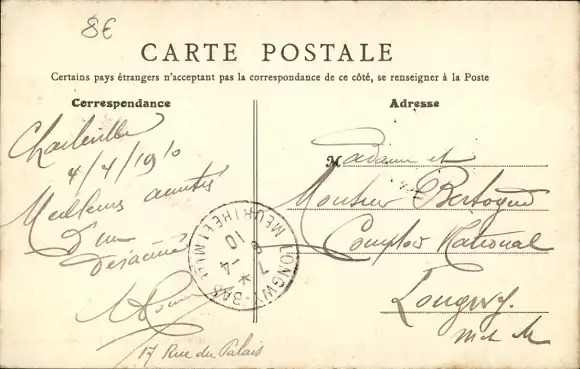 8€
CARTE POSTALE
Certains pays étrangers n'acceptant pas la correspondance de ce côté, se renseigner à la Poste
Correspondance
Adresse
Charleville
4/4/1910
Meilleurs amitiés
d'un
Déraciné
17 Rue du Palais
Madame et
Monsieur
Comptoir National
Longwy.
M et M
LONGWY-BAS
MEURTHE ET M
7 *
-4
10